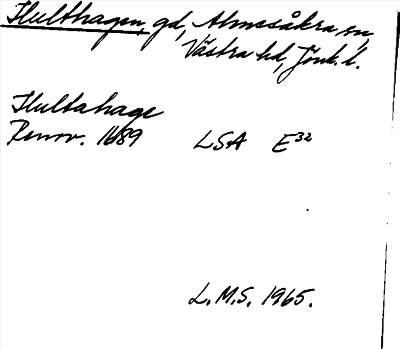 Hulthagen, gd, Almesåkra sn,
Västra hd, Jönk. l.
Hultahage
Renov. 1689 LSA E³²
L.M.S. 1965.